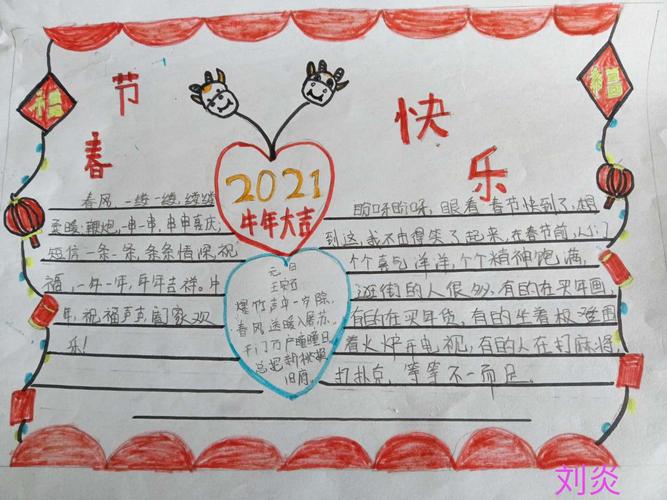 福
福
春节
快乐
2021
牛年大吉
春风,一缕一缕,缕缕
柔暖,鞭炮,一串一串,串串喜庆;
短信一条一条,条条情深,祝
福,一年一年,年年吉祥。牛
年,祝福声声,阖家欢
乐!
元日
王安石
爆竹声中一岁除,
春风送暖入屠苏。
千门万户曈曈日,
总把新桃换
旧符。
盼呀盼呀,眼看春节快到了,想
到这,我不由得笑了起来,在春节前,人们
个个喜气洋洋,个个精神饱满,
逛街的人很多,有的在买年画,
有的在买年货,有的坐着
着火炉看电视,有的人在打麻将,
打扑克,等等不一而足。
刘炎